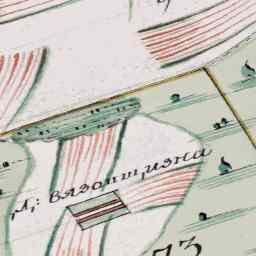 д: вязовщизна
73